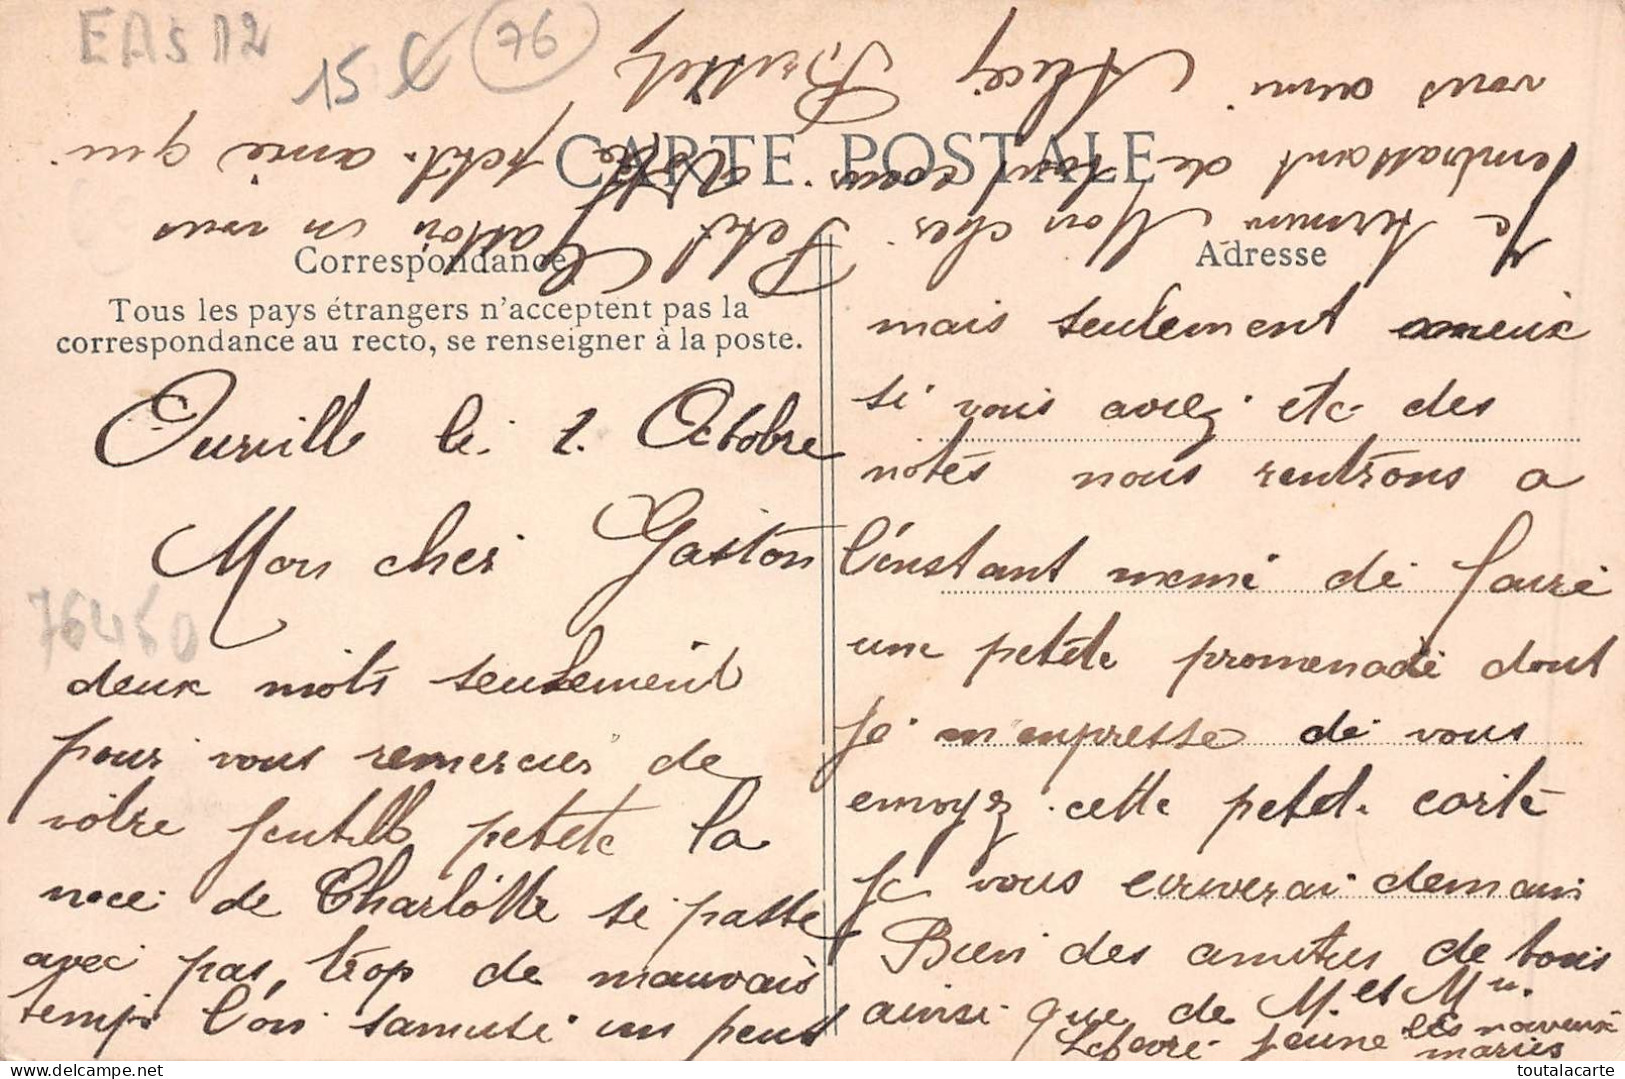 EAS 12
15 €
76
CARTE POSTALE
Correspondance
Adresse
Tous les pays étrangers n'acceptent pas la
correspondance au recto, se renseigner à la poste.
76450
Ourvill le. 2. Octobre
Mon cher Gaston
deux mots seulement
pour vous remercier de
vôtre gentille petete la
noce de Charlotte se passe
avec pas, trop de mauvais
temps l'on samuse un peut
mais seulement meux
si vous avez etc des
notes nous rentrons a
l'instant meme de faire
une petete promenade dont
je m'empresse de vous
envoyez cette petet. carte
Je vous ecriverai demain
Bien des amities de tous
ainsi que de M et Mu.
Lefevre jeune les nouveux
maries
Je termine Mon cher Petit Gaston en vous
embrassant de tout coeur Votre petit. amie qui
vous aimi
toutalacarte